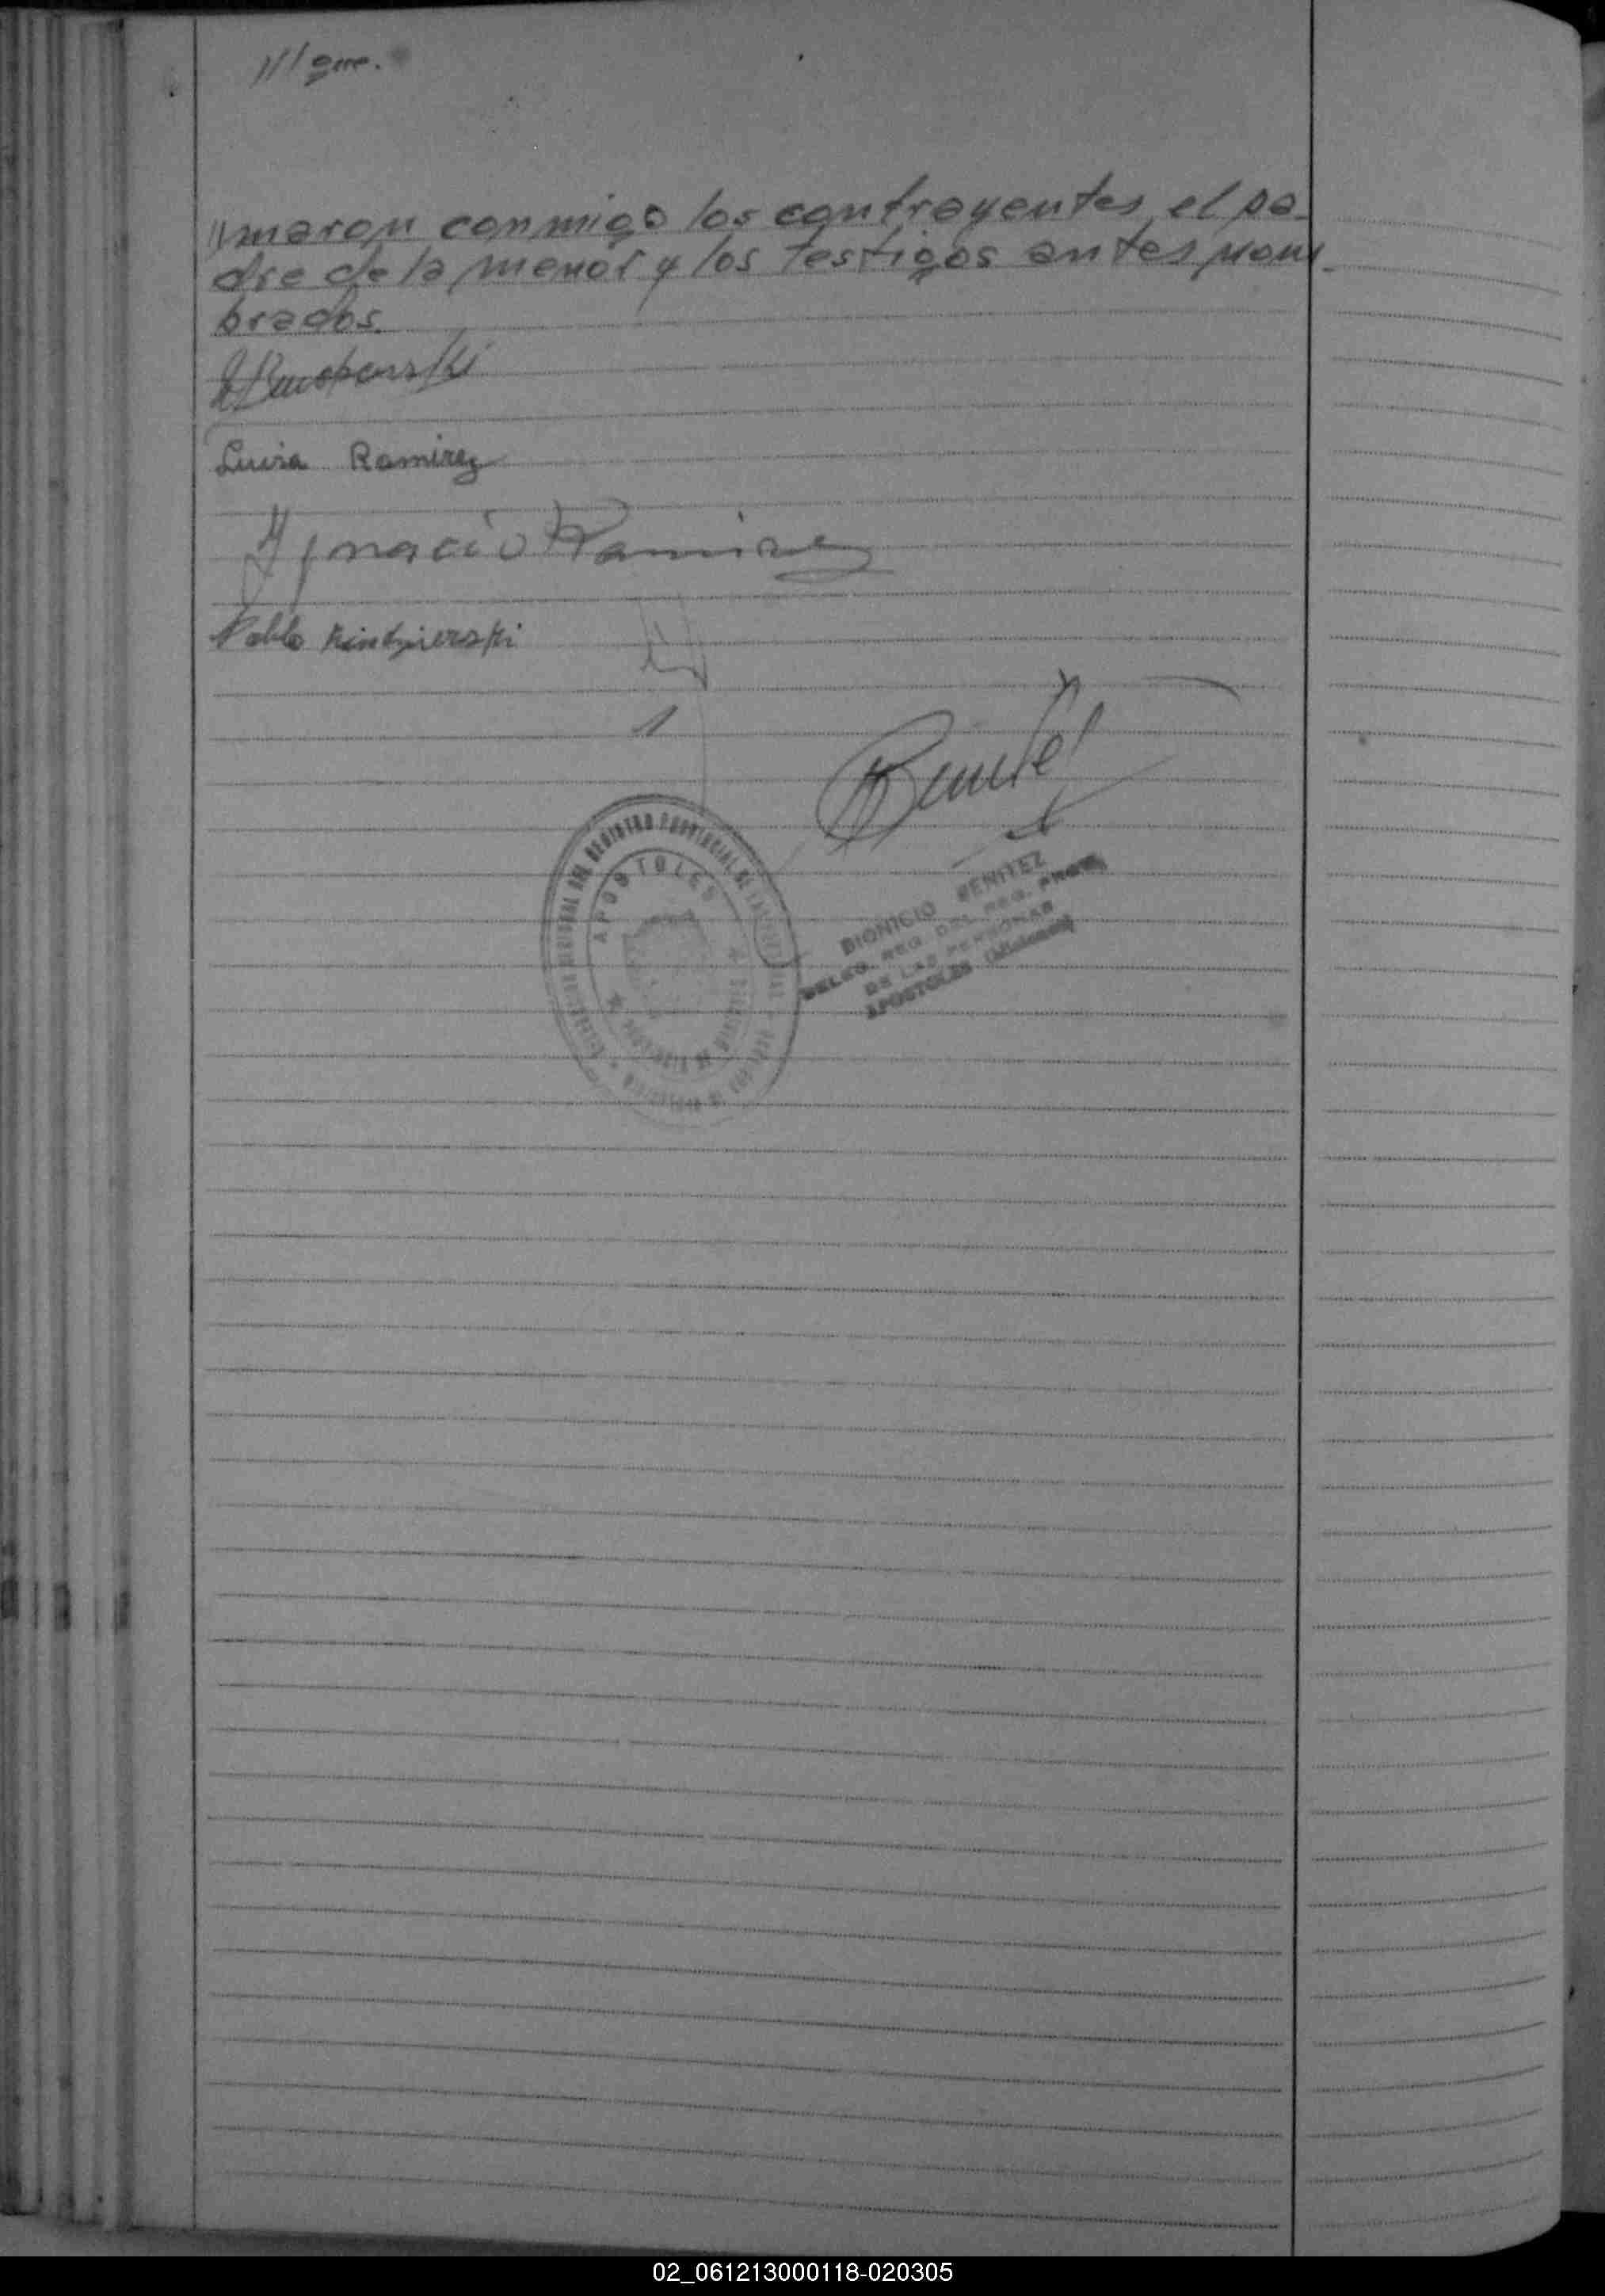 ///
//maron conmigo los contrayentes, el pa-
dre de la menor y los testigos antes nom-
brados.
Luisa Ramirez
Ygnacio Ramirez
Pablo
Benitez
REGISTRO PROVINCIAL DE
APOSTOLES
DIONICIO BENITEZ
DELEG. REG. DEL REG. PROV.
DE LAS PERSONAS
APOSTOLES (Misiones)
02_061213000118-020305